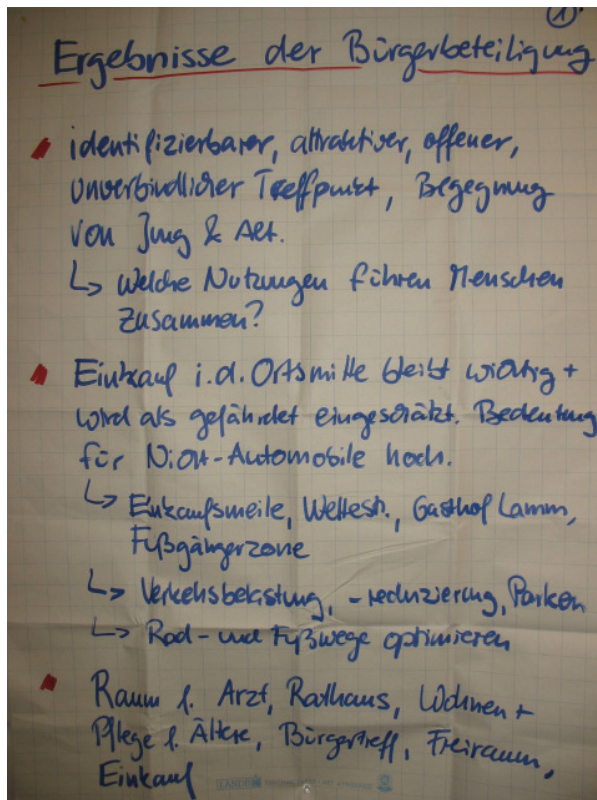 1.
Ergebnisse der Bürgerbeteiligung
identifizierbarer, attraktiver, offener,
unverbindlicher Treffpunkt, Begegnung
von Jung & Alt.
↳ Welche Nutzungen führen Menschen
zusammen?
Einkauf i.d. Ortsmitte bleibt wichtig +
wird als gefährdet eingeschätzt. Bedeutung
für Nicht-Automobile hoch.
↳ Einkaufsmeile, Wettestr., Gasthof Lamm,
Fußgängerzone
↳ Verkehsbelastung, -reduzierung, Parken
↳ Rad- und Fußwege optimieren
Raum f. Arzt, Rathaus, Wohnen +
Pflege f. Ältere, Bürgertreff, Freiraum,
Einkauf